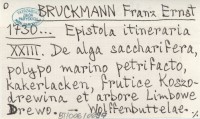 BRUCKMANN Franz Ernst
1730... Epistola itineraria
XXIII. De alga saccharifera,
polypo marino petrifacto,
kakerlacken, frutice Koszo-
drewina et arbore Limbowe
Drewo. — Wolffenbuttelae.